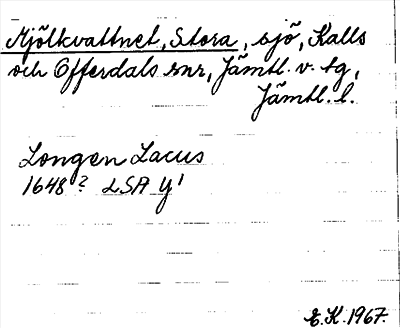 Mjölkvattnet, Stora, sjö, Kalls
och Offerdals snr, Jämtl. v. tg,
Jämtl. l.
Longen Lacus
1648? LSA Y1
E.K. 1967.